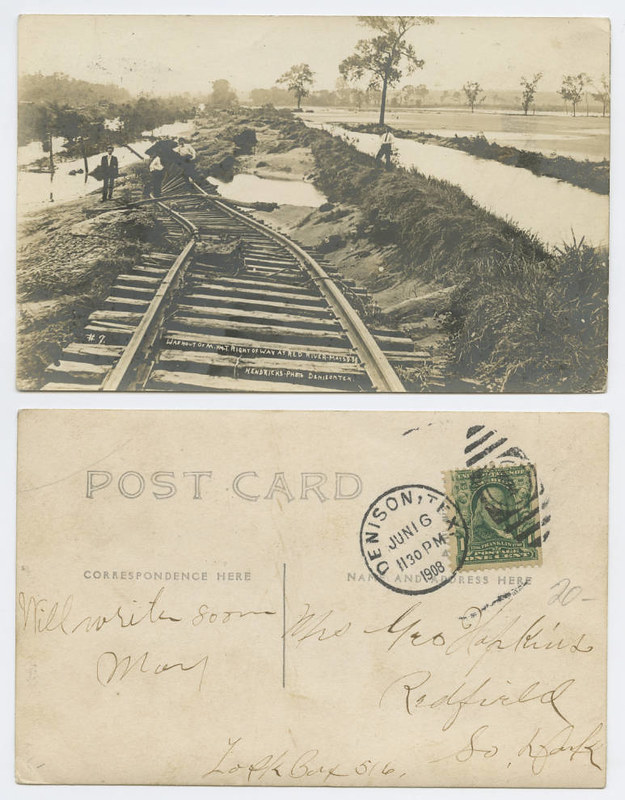 # 7.
WASHOUT OF M.K&T. RIGHT OF WAY AT RED RIVER-
KENDRICKS-PHOTO DENISON TEX
POST CARD
DENISON, TEX.
JUN 16
1130 PM
1908
POSTAGE
ONE CENT
CORRESPONDENCE HERE
NAME AND ADDRESS HERE
20-
Will write soon
May
Mrs Geo Hopkins
Redfield
So. Dak
Lock Box 516.